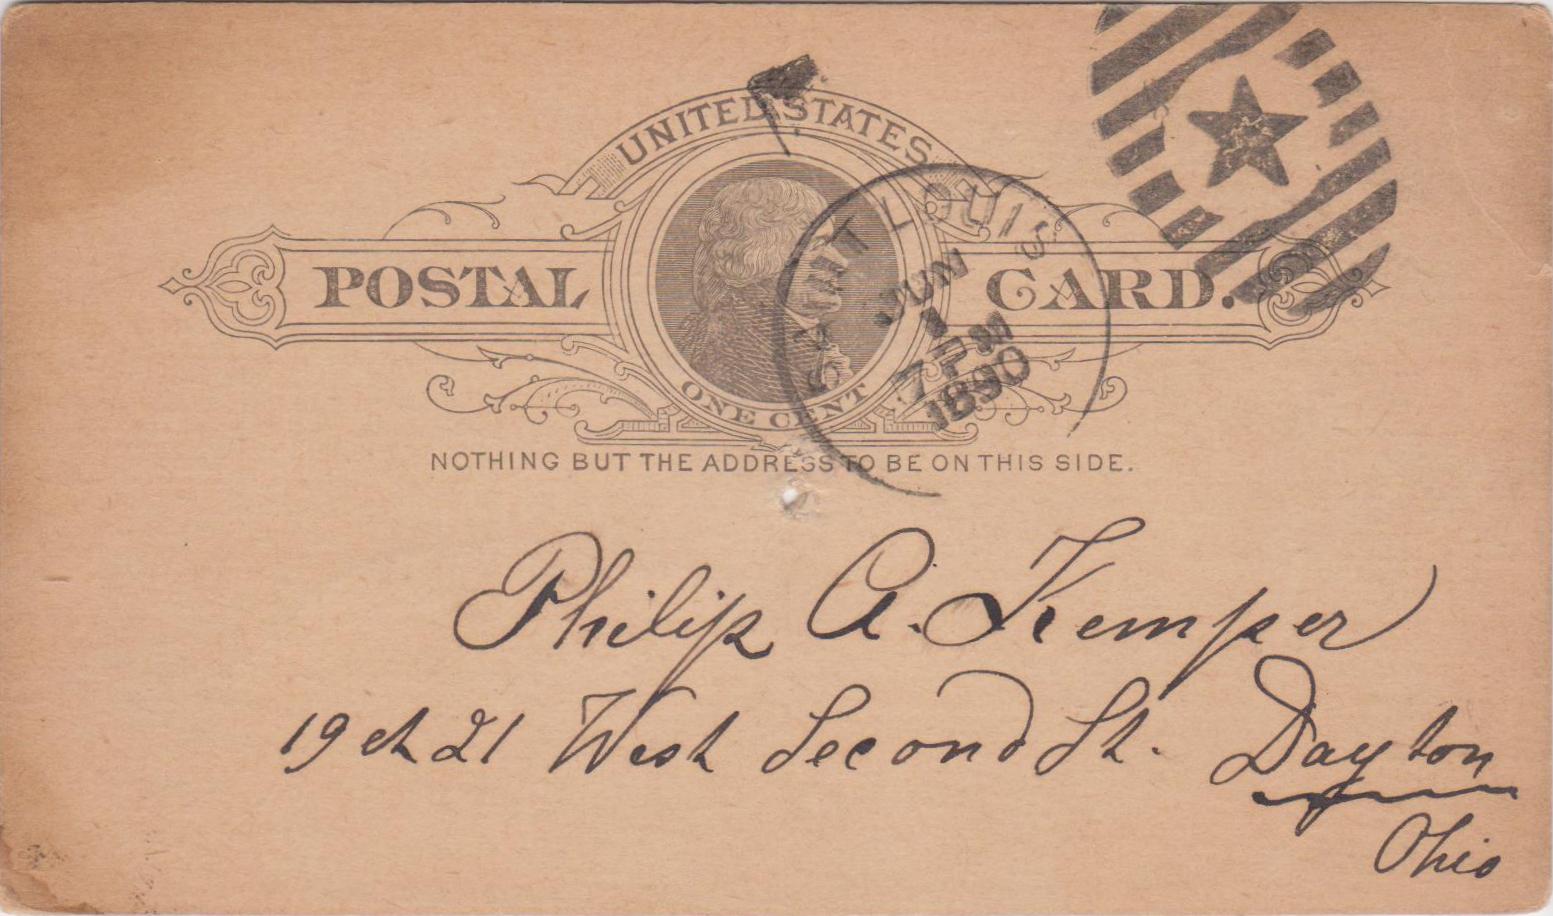 UNITED STATES
POSTAL CARD.
ONE CENT
SAINT LOUIS
JUN
7 P
1890
NOTHING BUT THE ADDRESS TO BE ON THIS SIDE.
Philip A. Kemper
19 et 21 West Second St. Dayton
Ohio